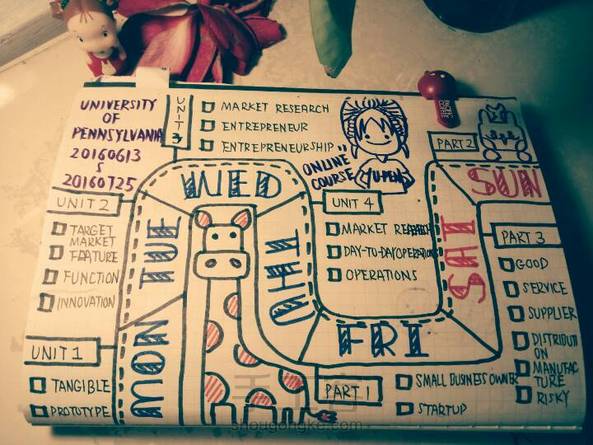 UNIVERSITY
OF
PENNSYLVANIA
20160613
S
20160725
UNIT 3
MARKET RESEARCH
ENTREPRENEUR
ENTREPRENEURSHIP
"ONLINE
COURSE"
U-PEN
PART 2
UNIT 2
TARGET
MARKET
FEATURE
FUNCTION
INNOVATION
UNIT 1
TANGIBLE
PROTOTYPE
MON
TUE
WED
THU
FRI
SAT
SUN
UNIT 4
MARKET RESEARCH
DAY-TO-DAY OPERATIONS
OPERATIONS
PART 3
GOOD
SERVICE
SUPPLIER
DISTRIBUTI
ON
MANUFAC
TURE
RISKY
PART 1
SMALL BUSINESS OWNER
STARTUP
shougongke.com